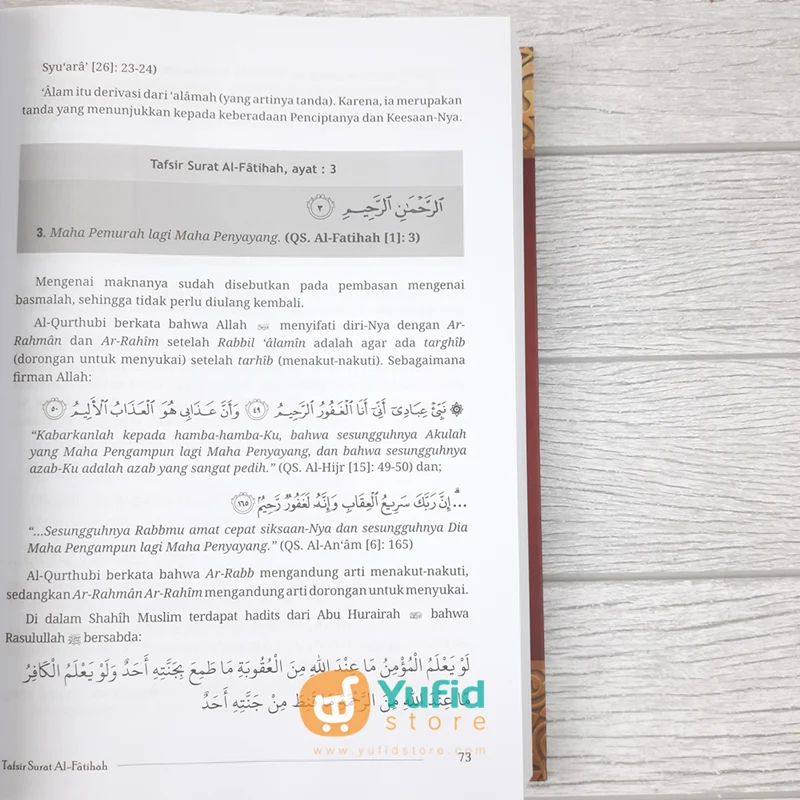 Syu‘arâ’ [26]: 23-24)
‘Âlam itu derivasi dari ‘alâmah (yang artinya tanda). Karena, ia merupakan
tanda yang menunjukkan kepada keberadaan Penciptanya dan Keesaan-Nya.
Tafsir Surat Al-Fâtihah, ayat : 3
ٱلرَّحْمَٰنِ ٱلرَّحِيمِ ٣
3. Maha Pemurah lagi Maha Penyayang. (QS. Al-Fatihah [1]: 3)
Mengenai maknanya sudah disebutkan pada pembasan mengenai
basmalah, sehingga tidak perlu diulang kembali.
Al-Qurthubi berkata bahwa Allah ﷻ menyifati diri-Nya dengan Ar-
Rahmân dan Ar-Rahîm setelah Rabbil ‘âlamîn adalah agar ada targhîb
(dorongan untuk menyukai) setelah tarhîb (menakut-nakuti). Sebagaimana
firman Allah:
۞ نَبِّئْ عِبَادِىٓ أَنِّىٓ أَنَا ٱلْغَفُورُ ٱلرَّحِيمُ ٤٩ وَأَنَّ عَذَابِى هُوَ ٱلْعَذَابُ ٱلْأَلِيمُ ٥٠
“Kabarkanlah kepada hamba-hamba-Ku, bahwa sesungguhnya Akulah
yang Maha Pengampun lagi Maha Penyayang, dan bahwa sesungguhnya
azab-Ku adalah azab yang sangat pedih.” (QS. Al-Hijr [15]: 49-50) dan;
... إِنَّ رَبَّكَ سَرِيعُ ٱلْعِقَابِ وَإِنَّهُۥ لَغَفُورٌ رَّحِيمٌۢ ١٦٥
“...Sesungguhnya Rabbmu amat cepat siksaan-Nya dan sesungguhnya Dia
Maha Pengampun lagi Maha Penyayang.” (QS. Al-An‘âm [6]: 165)
Al-Qurthubi berkata bahwa Ar-Rabb mengandung arti menakut-nakuti,
sedangkan Ar-Rahmân Ar-Rahîm mengandung arti dorongan untuk menyukai.
Di dalam Shahîh Muslim terdapat hadits dari Abu Hurairah ؓ bahwa
Rasulullah ﷺ bersabda:
لَوْ يَعْلَمُ الْمُؤْمِنُ مَا عِنْدَ اللهِ مِنَ الْعُقُوبَةِ مَا طَمِعَ بِجَنَّتِهِ أَحَدٌ وَلَوْ يَعْلَمُ الْكَافِرُ
مَا عِنْدَ اللهِ مِنَ الرَّحْمَةِ مَا قَنَطَ مِنْ جَنَّتِهِ أَحَدٌ
Yufid
store
www.yufidstore.com
Tafsir Surat Al-Fâtihah
73